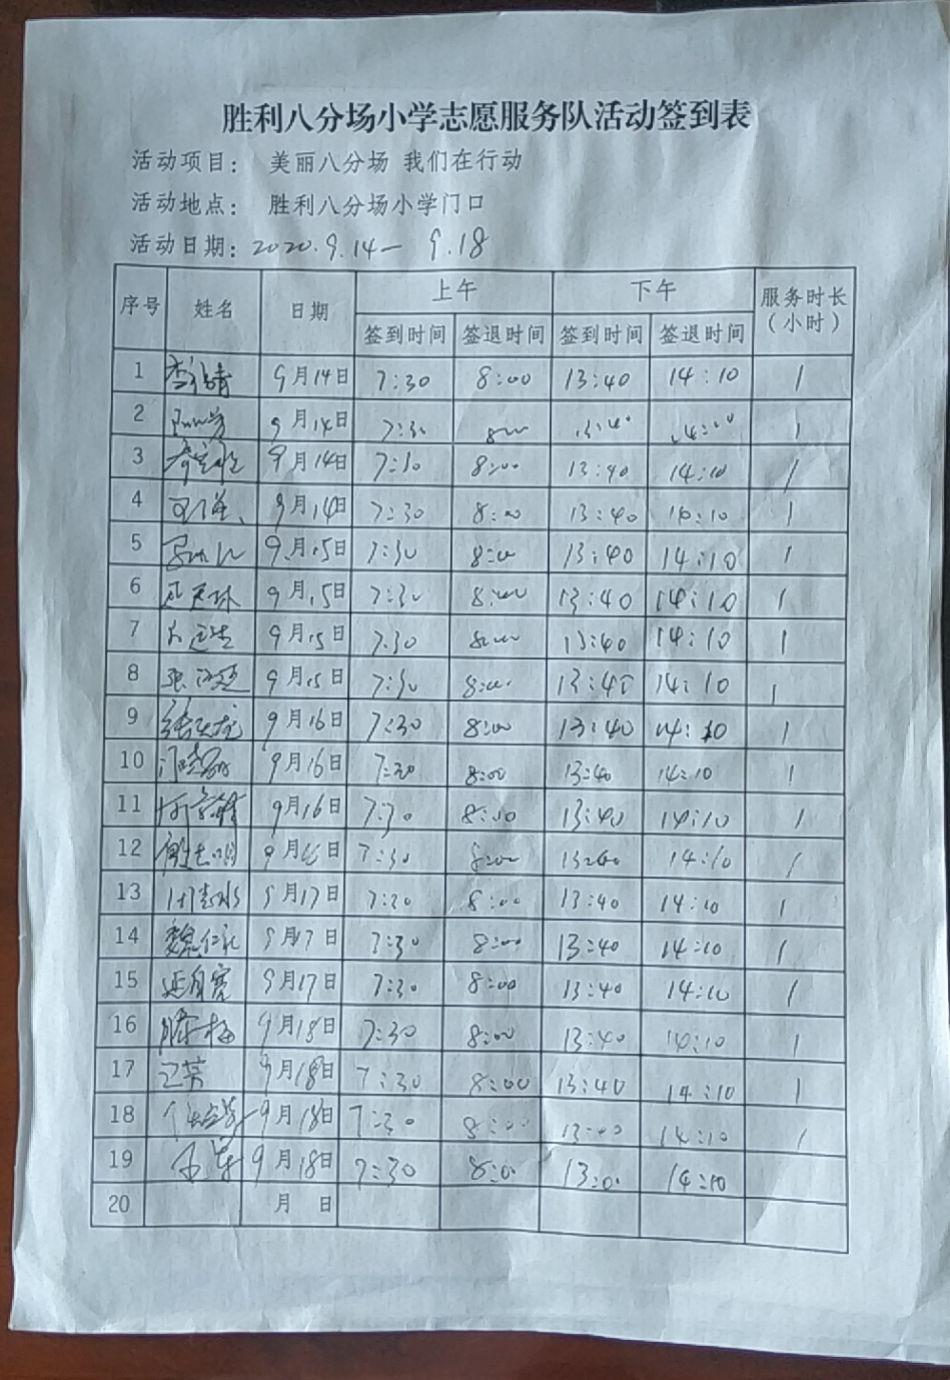 胜利八分场小学志愿服务队活动签到表
活动项目： 美丽八分场 我们在行动
活动地点： 胜利八分场小学门口
活动日期：2020.9.14— 9.18
序号 姓名 日期 上午 下午 服务时长（小时）
签到时间 签退时间 签到时间 签退时间
1 9月14日 7:30 8:00 13:40 14:10 1
2 9月14日 7:30 8:00 13:40 14:00 1
3 9月14日 7:30 8:00 13:40 14:10 1
4 9月14日 7:30 8:00 13:40 14:10 1
5 9月15日 7:30 8:00 13:40 14:10 1
6 9月15日 7:30 8:00 13:40 14:10 1
7 9月15日 7:30 8:00 13:40 14:10 1
8 9月15日 7:30 8:00 13:40 14:10 1
9 9月16日 7:30 8:00 13:40 14:10 1
10 9月16日 7:30 8:00 13:40 14:10 1
11 9月16日 7:30 8:00 13:40 14:10 1
12 9月16日 7:30 8:00 13:40 14:10 1
13 9月17日 7:30 8:00 13:40 14:10 1
14 魏仁礼 9月17日 7:30 8:00 13:40 14:10 1
15 9月17日 7:30 8:00 13:40 14:10 1
16 滕梅 9月18日 7:30 8:00 13:40 14:10 1
17 9月18日 7:30 8:00 13:40 14:10 1
18 9月18日 7:30 8:00 13:00 14:10 1
19 9月18日 7:30 8:00 13:00 14:10
20 月 日